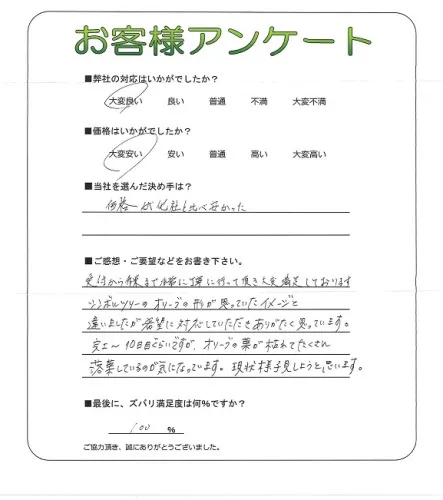 お客様アンケート
■弊社の対応はいかがでしたか？
大変良い 良い 普通 不満 大変不満
■価格はいかがでしたか？
大変安い 安い 普通 高い 大変高い
■当社を選んだ決め手は？
価格が他社と比べ安かった
■ご感想・ご要望などをお書き下さい。
受付から作業まで非常に丁寧に行って頂き大変満足しております
シンボルツリーのオリーブの形が思っていたイメージと
違いましたが希望に対応していただきありがたく思っています。
完工〜10日目ぐらいですが、オリーブの葉が枯れてたくさん
落葉しているのが気になっています。現状様子見しようと思います。
■最後に、ズバリ満足度は何%ですか？
100 %
ご協力頂き、誠にありがとうございました。